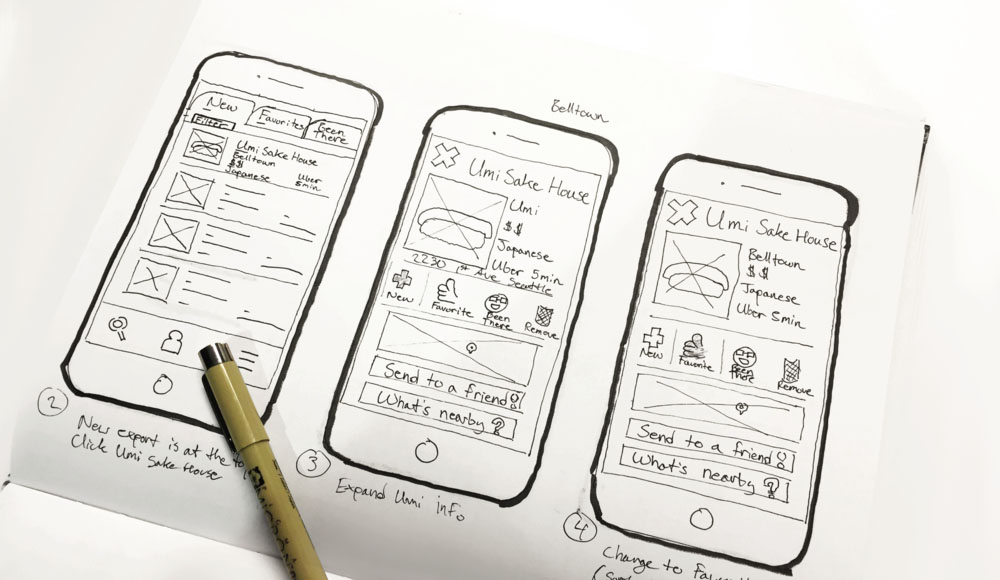 Belltown
New
Favorites
Been There
Filter
Umi Sake House
Belltown
$$
Japanese
Uber 5min
2
New export is at the
Click Umi Sake House
Umi Sake House
Umi
$$
Japanese
Uber 5min
2230 1st Ave Seattle
New
Favorite
Been there
Remove
Send to a friend
What's nearby ?
3
Expand Umi info
Umi Sake House
Belltown
$$
Japanese
Uber 5min
New
Favorite
Been there
Remove
Send to a friend
What's nearby ?
4
Change to